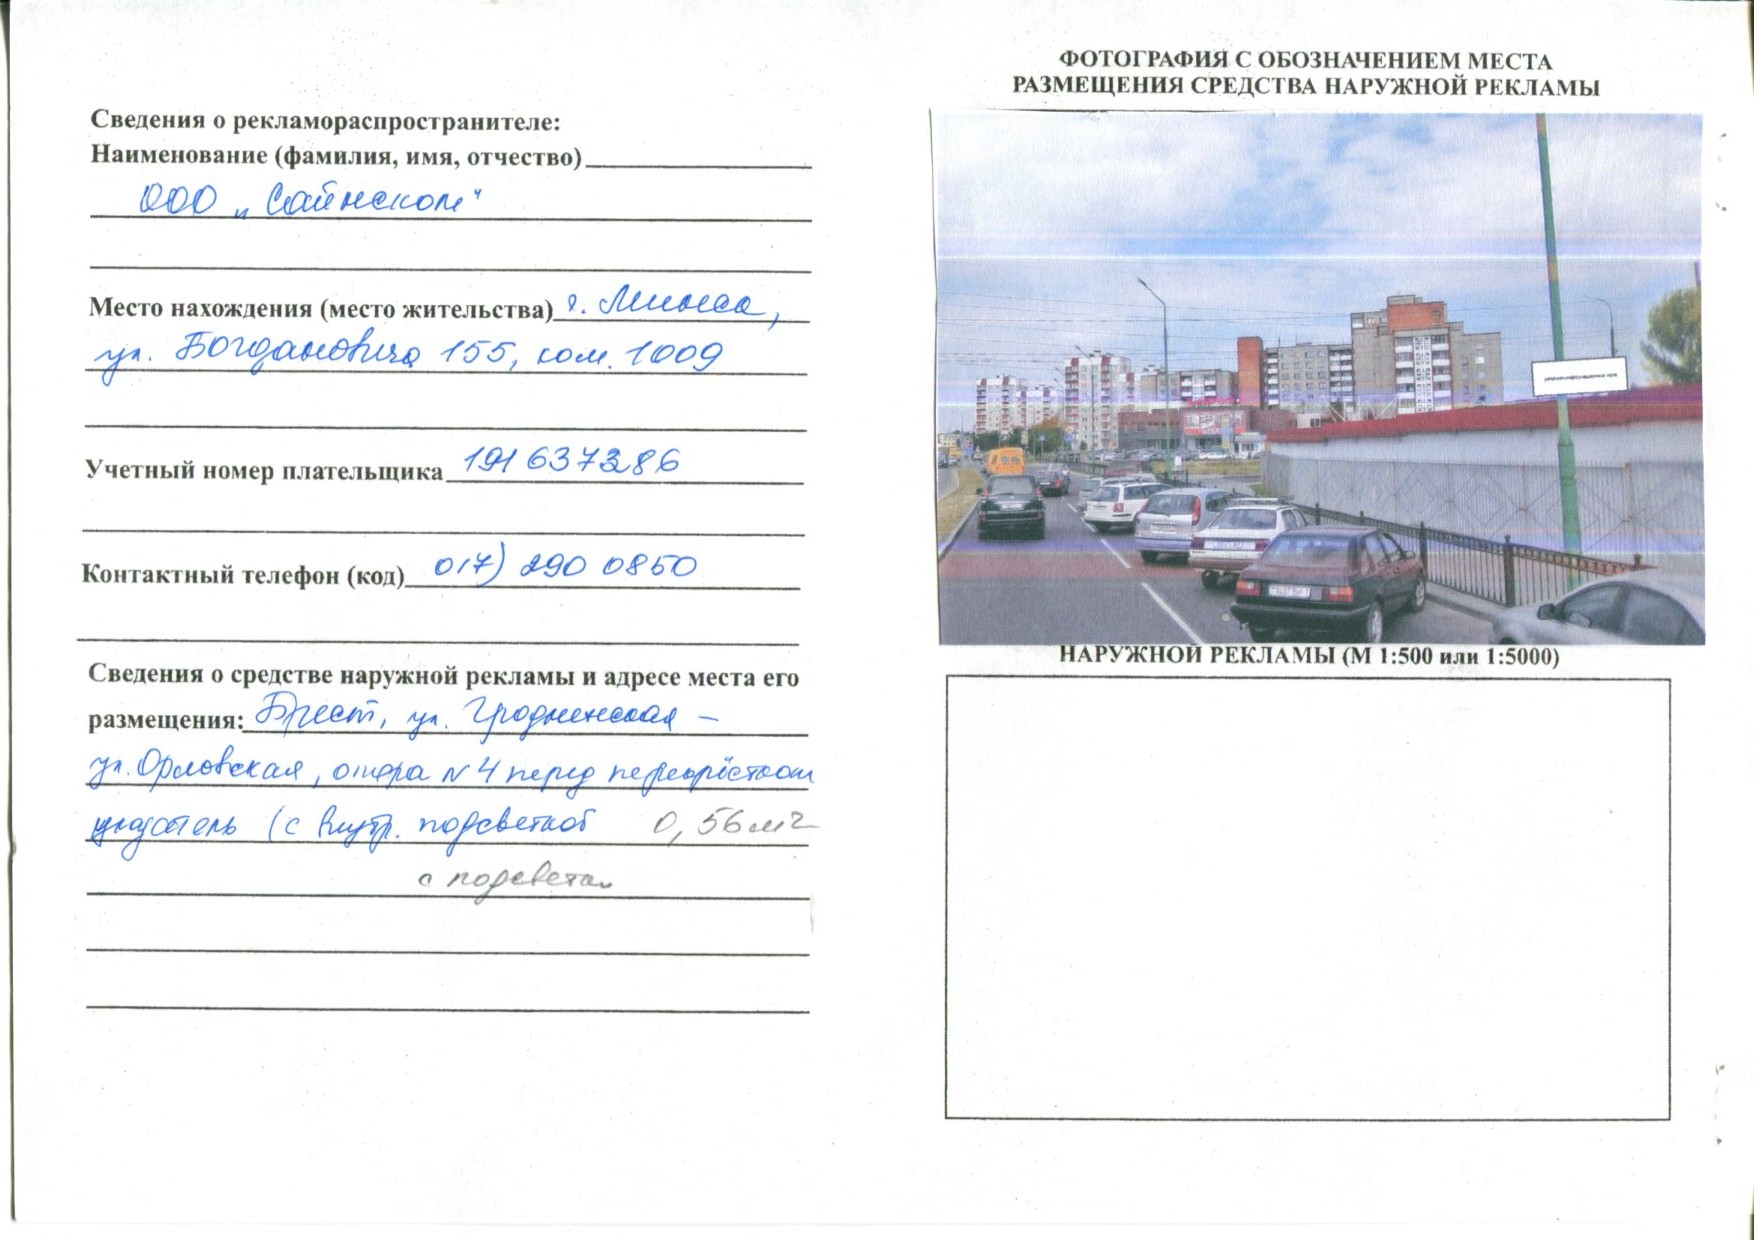 Сведения о рекламораспространителе:
Наименование (фамилия, имя, отчество)
ООО „Сайнском"
Место нахождения (место жительства) г. Минск,
ул. Богдановича 155, ком. 1009
Учетный номер плательщика 191637286
Контактный телефон (код) 017) 290 0850
Сведения о средстве наружной рекламы и адресе места его
размещения: Брест, ул. Гродненская –
ул. Орловская, опора N 4 перед перекрёстком
указатель (с внутр. подсветкой 0,56 м2
с подсветк
ФОТОГРАФИЯ С ОБОЗНАЧЕНИЕМ МЕСТА
РАЗМЕЩЕНИЯ СРЕДСТВА НАРУЖНОЙ РЕКЛАМЫ
НАРУЖНОЙ РЕКЛАМЫ (М 1:500 или 1:5000)